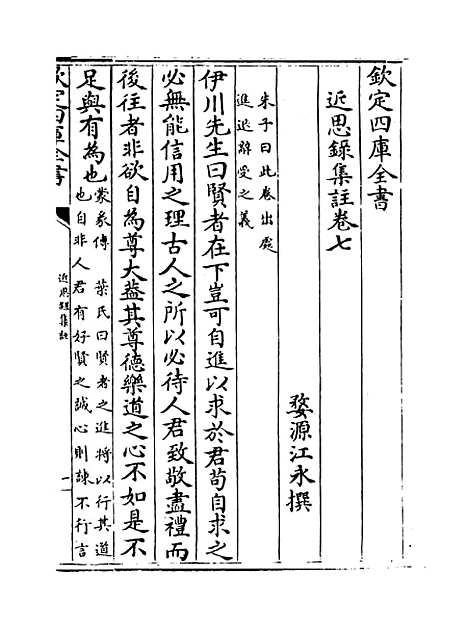 欽定四庫全書
近思錄集註卷七
婺源江永撰
朱子曰此卷出處
進退辭受之義
伊川先生曰賢者在下豈可自進以求於君苟自求之
必無能信用之理古人之所以必待人君致敬盡禮而
後往者非欲自為尊大葢其尊德樂道之心不如是不
足與有為也
蒙彖傳 葉氏曰賢者之進將以行其道
也自非人君有好賢之誠心則諫不行言
欽定四庫全書
近思錄集註
一